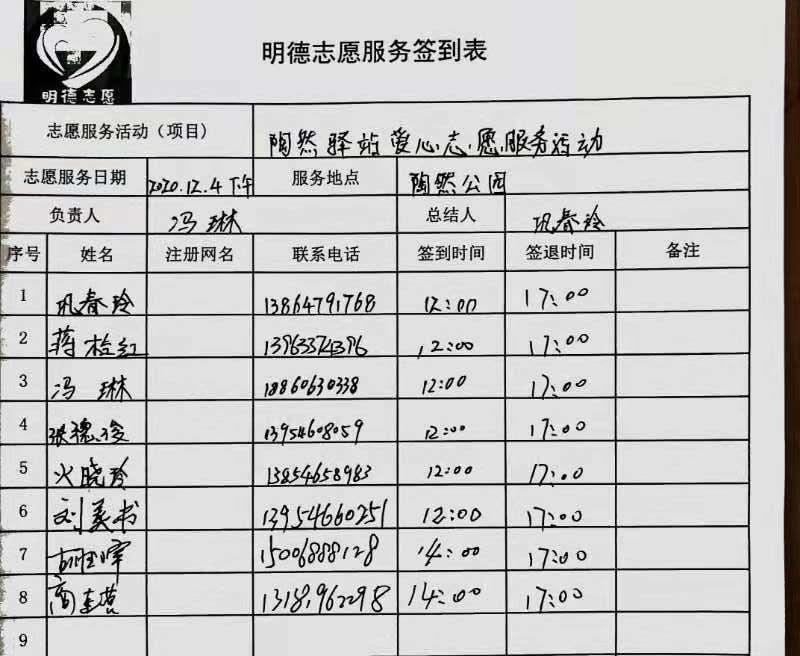 明德志愿
明德志愿服务签到表
志愿服务活动（项目） 陶然驿站爱心志愿服务活动
志愿服务日期 2020.12.4下午 服务地点 陶然公园
负责人 冯琳 总结人 巩春玲
序号 姓名 注册网名 联系电话 签到时间 签退时间 备注
1 巩春玲 13864791768 12:00 17:00
2 蒋桂红 12:00 17:00
3 冯琳 18860630338 12:00 17:00
4 张德 13954608059 12:00 17:00
5 火晓玲 13854658983 12:00 17:00
6 刘美书 13954660251 12:00 17:00
7 15006888128 14:00 17:00
8 13181962298 14:00 17:00
9